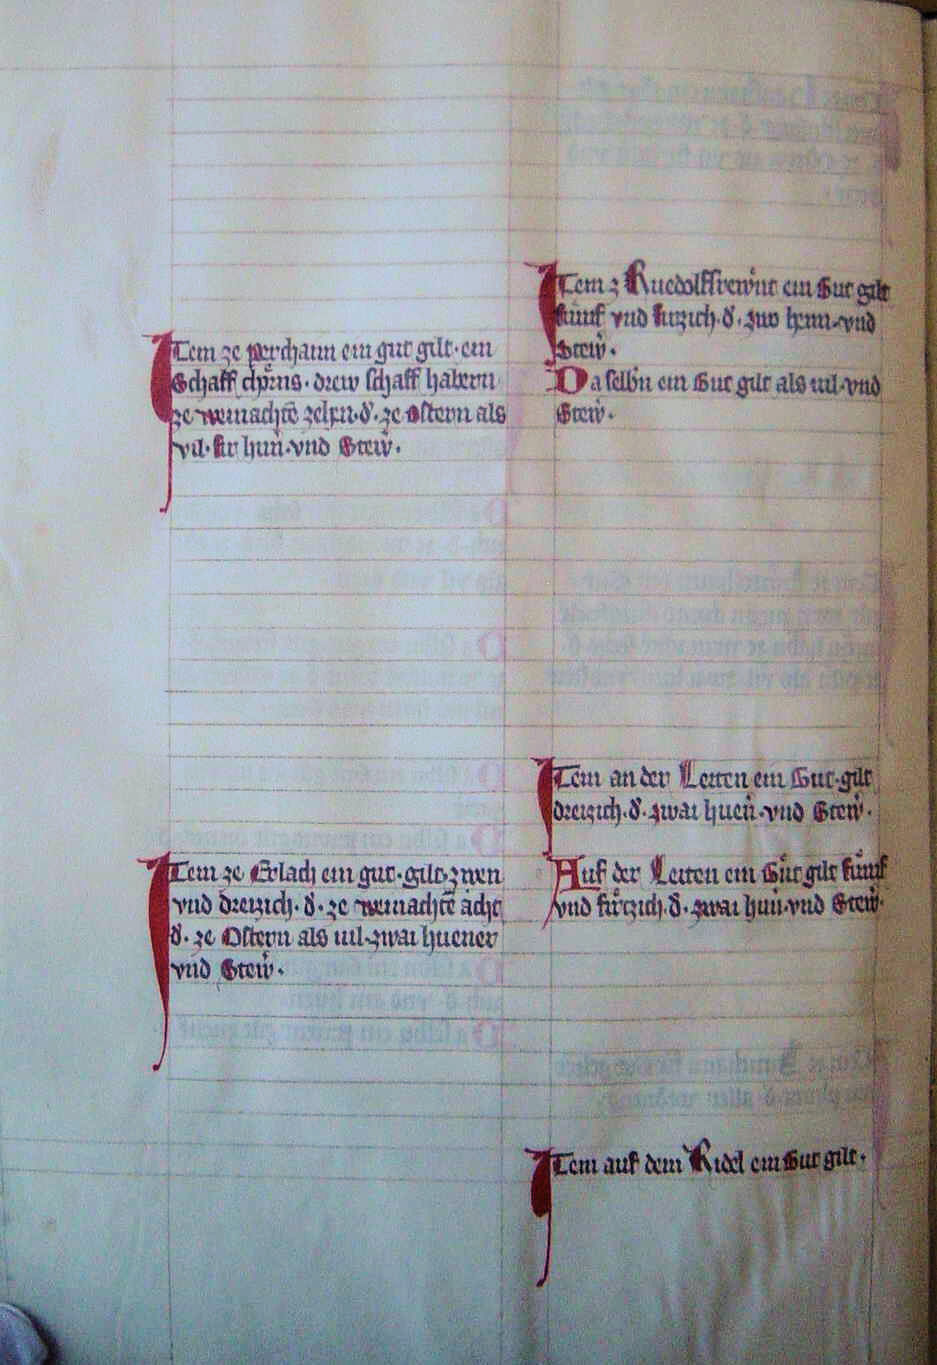 Item ze perchaim ein gut gilt · ein
Schaff chorns · drew schaff habern
ze weinachtē zehn · d · ze Ostern als
vil · fir hun̄ · vnd Stew̄ ·
Item ze Erlach ein gut · gilt · zwen
vnd dreizich · d · ze weinachtē acht
d · ze Ostern als uil · zwai huener
vnd Stew̄ ·
Item z ein Gut gilt
fünf vnd firzich · d · zwo henn · vnd
Stew̄ ·
Da selbn ein Gut gilt als uil · vnd
Stew̄ ·
Item an der Leiten ein Gut · gilt
dreizich · d · zwai huen̄ · vnd Stew̄ ·
Auf der Leiten ein Gůt gilt fünf
vnd firtzich · d · zwai hun̄ · vnd Stew̄ ·
Item auf dem Ridel ein Gut gilt ·